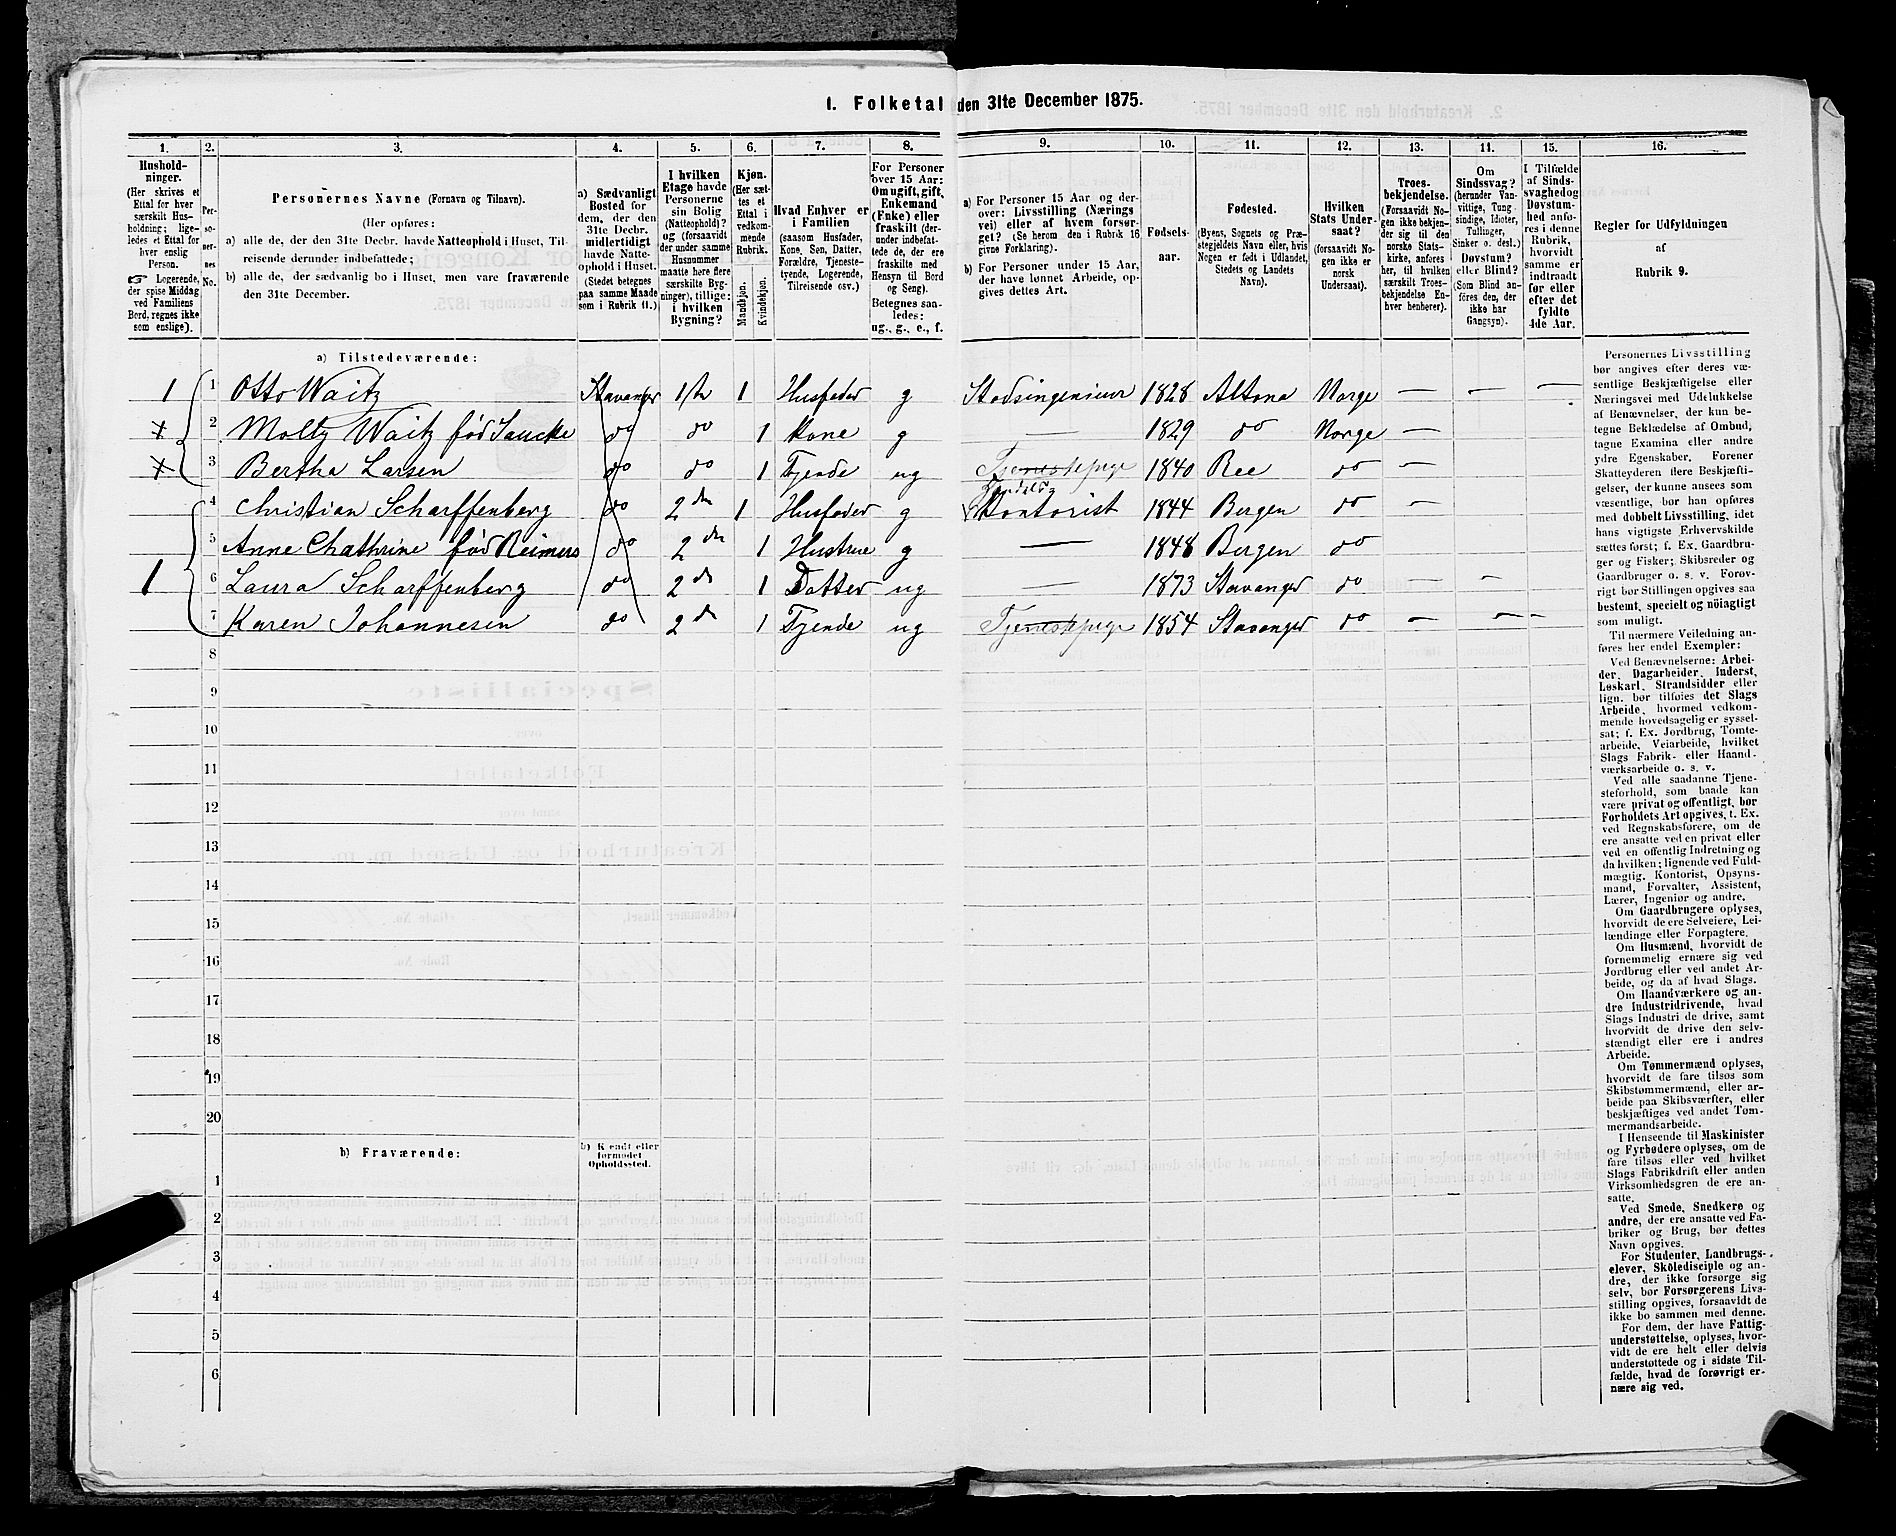 1. Folketal den 31te December 1875.
1.
2.
3.
4.
5.
6.
7.
8.
9.
10.
11.
12.
13.
14.
15.
16.
Hushold-
ninger.
(Her skrives et
Ettal for hver
særskilt Hus-
holdning; lige-
ledes et Ettal for
hver enslig
Person.
Logerende,
der spise Middag
ved Familiens
Bord, regnes ikke
som enslige).
Per-
so-
ner-
nes
No.
Personernes Navne (Fornavn og Tilnavn).
(Her opføres:
a) alle de, der den 31te Decbr. havde Natteophold i Huset, Til-
reisende derunder indbefattede;
b) alle de, der sædvanlig bo i Huset, men vare fraværende
den 31te December.
a) Sædvanligt
Bosted for
dem, der den
31te Decbr.
midlertidigt
havde Natte-
ophold i Huset.
(Stedet betegnes
paa samme Maade
som i Rubrik 11.)
I hvilken
Etage havde
Personerne
sin Bolig
(Natteophold)?
og (forsaavidt
der under samme
Husnummer
maatte høre flere
særskilte Byg-
ninger), tillige:
i hvilken
Bygning?
Kjøn.
(Her sæt-
tes et
Ettal i
vedkom-
mende
Rubrik.
Mandkjøn.
Kvindekjøn.
Hvad Enhver er
i Familien
(saasom Husfader,
Kone, Søn, Datter,
Forældre, Tjeneste-
tyende, Logerende,
Tilreisende osv.)
For Personer
over 15 Aar:
Om ugift, gift,
Enkemand
(Enke) eller
fraskilt (der-
under indbefat-
tede de, der ere
fraskilte med
Hensyn til Bord
og Seng).
Betegnes saa-
ledes:
ug., g., e., f.
a) For Personer 15 Aar og der-
over: Livsstilling (Nærings
vei) eller af hvem forsør-
get? (Se herom den i Rubrik 16
givne Forklaring).
b) For Personer under 15 Aar,
der have lønnet Arbeide, op-
gives dettes Art.
Fødsels-
aar.
Fødested.
(Byens, Sognets og Præ-
stegjeldets Navn eller, hvis
Nogen er født i Udlandet,
Stedets og Landets
Navn).
Hvilken
Stats Under-
saat?
(forsaavidt No-
gen ikke er
norsk
Undersaat).
Troes-
bekjendelse.
(Forsaavidt No-
gen ikke bekjen-
der sig til den
norske Stats-
kirke, anføres
her, til hvilken
særskilt Troes-
bekjendelse En-
hver henhører).
Om
Sindssvag?
(herunder Van-
vittige, Tung
sindige, Idioter,
Tullinger,
Sinker o. desl.)
Døvstum?
eller Blind?
(Som Blind an-
føres den, der
ikke har
Gangsyn).
I Tilfælde
af Sinds-
svaghed og
Døvstum-
hed anfø-
res i denne
Rubrik,
hvorvidt
samme er
indtraadt
før eller
efter det
fyldte
4de Aar.
Regler for Udfyldningen
af
Rubrik 9.
a) Tilstedeværende:
1 1 Otto Waitz Stavanger 1ste 1 Husfader g Stadsingenieur 1828 Altona Norge — — —
x 2 Moltz Waitz født Saucke do do 1 Kone g — 1829 do Norge —
x 3 Bertha Larsen do do 1 Tjende ug Tjenestepige 1840 Ree do —
4 Christian Scharffenberg do 2den 1 Husfader g Handels Kontorist 1844 Bergen do —
5 Anne Chathrine født Reimers do 2den 1 Hustrue g — 1848 Bergen do
1 6 Laura Scharffenberg do 2d 1 Datter ug — 1873 Stavanger do — —
7 Karen Johannesen do 2d 1 Tjende ug Tjenestepige 1854 Stavanger do — —
8
9
10
11
12
13
14
15
16
17
18
19
20
b) Fraværende:
b) Kjendt eller
formodet
Opholdssted.
1
2
3
4
5
6
Personernes Livsstilling
bør angives efter deres væ-
sentlige Beskjæftigelse eller
Næringsvei med Udelukkelse
af Benævnelser, der kun be-
tegne Beklædelse af Ombud,
tagne Examina eller andre
ydre Egenskaber. Forener
Skatteyderen flere Beskjæfti-
gelser, der kunne ansees som
væsentlige, bør han opføres
med dobbelt Livsstilling, idet
hans vigtigste Erhvervskilde
sættes først; f. Ex. Gaardbru-
ger og Fisker; Skibsreder og
Gaardbruger o. s. v. Forøv-
rigt bør Stillingen opgives saa
bestemt, specielt og nöiagtigt
som muligt.
Til nærmere Veiledning an-
føres her endel Exempler:
Ved Benævnelserne: Arbei-
der, Dagarbeider, Inderst,
Løskarl, Strandsidder eller
lign. bør tilføies det Slags
Arbeide, hvormed vedkom-
mende hovedsagelig er syssel-
sat; f. Ex. Jordbrug, Tomte-
arbeide, Veiarbeide, hvilket
Slags Fabrik- eller Haand-
værksarbeide o. s. v.
Ved alle saadanne Tjene-
steforhold, som baade kan
være privat og offentligt, bør
Forholdets Art opgives, t. Ex.
ved Regnskabsførere, om de
ere ansatte ved en privat eller
ved en offentlig Indretning og
da hvilken; lignende ved Fuld-
mægtig, Kontorist, Opsyns-
mand, Forvalter, Assistent,
Lærer, Ingeniør og andre.
Om Gaardbrugere oplyses,
hvorvidt de ere Selveiere, Lei-
lændinge eller Forpagtere.
Om Husmænd, hvorvidt de
fornemmelig ernære sig ved
Jordbrug eller ved andet Ar-
beide, og da af hvad Slags.
Om Haandværkere og an-
dre Industridrivende, hvad
Slags Industri de drive, samt
hvorvidt de drive den selv-
stændigt eller ere i andres
Arbeide.
Om Tømmermænd oplyses,
hvorvidt de fare tilsøs som
Skibstømmermænd, eller ar-
beide paa Skibsværfter, eller
beskjæftiges ved andet Tøm-
mermandsarbeide.
I Henseende til Maskinister
og Fyrbødere oplyses, om de
fare tilsøs eller ved hvilket
Slags Fabrikdrift eller anden
Virksomhedsgren de ere an-
satte.
Ved Smede, Snedkere og
andre, der ere ansatte ved Fa-
briker og Brug, bør dettes
Navn opgives.
For Studenter, Landbrugs-
elever, Skôledisciple og an-
dre, der ikke forsørge sig
selv, bør Forsørgerens Livs-
stilling opgives, forsaavidt de
ikke bo sammen med denne.
For dem, der have Fattig-
understøttelse, oplyses, hvor-
vidt de ere helt eller delvis
understøttede og i sidste Til-
fælde, hvad de forøvrigt er-
nære sig ved.